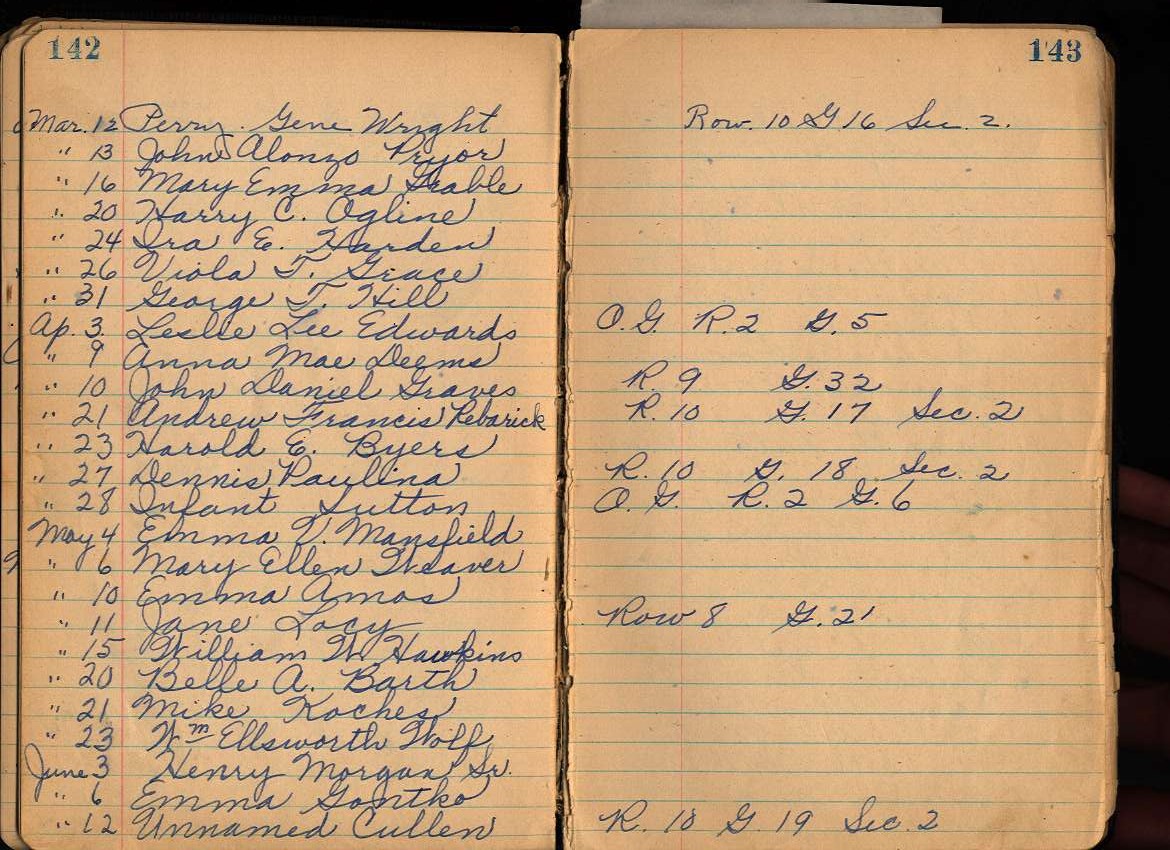 142
143
Mar. 12 Perry Gene Wright Row. 10 G 16 Sec. 2.
" 13 John Alonzo Pryor
" 16 Mary Emma Grable
" 20 Harry C. Ogline
" 24 Ira E. Harden
" 26 Viola T. Grace
" 31 George T. Hill
Ap. 3. Leslie Lee Edwards O.G. R.2 G.5
" 9 Anna Mae Deems
" 10 John Daniel Graves R.9 G.32
" 21 Andrew Francis Rebarick R.10 G.17 Sec. 2
" 23 Harold E. Byers
" 27 Dennis Paulina R.10 G. 18 Sec. 2
" 28 Infant Sutton O.G. R.2 G.6
May 4 Emma V. Mansfield
" 6 Mary Ellen Weaver
" 10 Emma Amos
" 11 Jane Lacy Row 8 G.21
" 15 William W. Hawkins
" 20 Belle A. Barth
" 21 Mike Koches
" 23 Wm Ellsworth Wolf
June 3 Henry Morgan Sr.
" 6 Emma Gontko
" 12 Unnamed Cullen R. 10 G. 19 Sec. 2